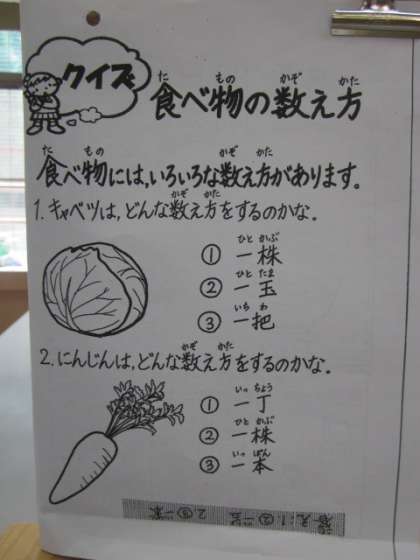 クイズ
食べ物の数え方
食べ物には,いろいろな数え方があります。
1.キャベツは,どんな数え方をするのかな。
① 一株
② 一玉
③ 一把
2.にんじんは,どんな数え方をするのかな。
① 一丁
② 一株
③ 一本
答え:1.②一玉 2.③一本